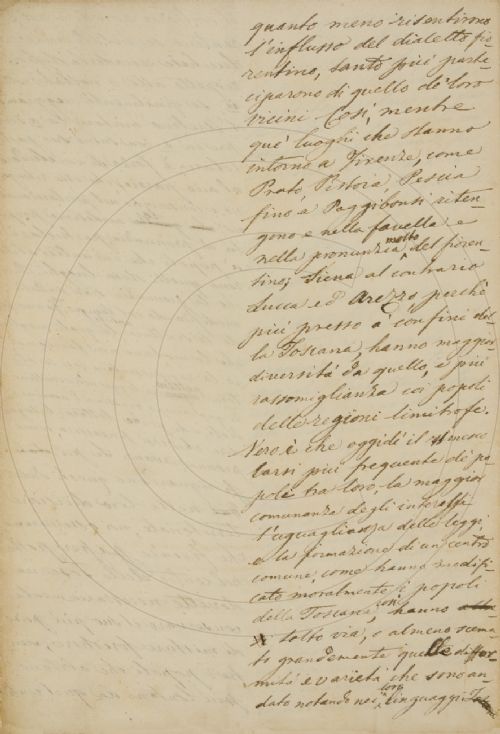 quanto meno risentirono
l'influsso del dialetto fio-
rentino, tanto più parte-
ciparono di quello de' loro
vicini. Così, mentre
que' luoghi che stanno
intorno a Firenze, come
Prato, Pistoia, Pescia
fino a Poggibonsi riten-
gono e nella favella e
nella pronunzia molto del fioren-
tino; Siena al contrario
Lucca ed Arezzo, perchè
più presso a' confini del-
la Toscana, hanno maggior
diversità da quello, e più
rassomiglianza coi popoli
delle regioni limitrofe.
Vero è che oggidì il mesco
larsi più frequente de' po-
poli tra loro, la maggior
comunanza degli interessi
l'uguaglianza delle leggi,
e la formazione di un centro
comune, come hanno riedifi-
cato moralmente i popoli
della Toscana, così hanno
tolto via, o almeno scema-
to grandemente quelle diffor-
mità e varietà che sono an-
dato notando nei loro linguaggi